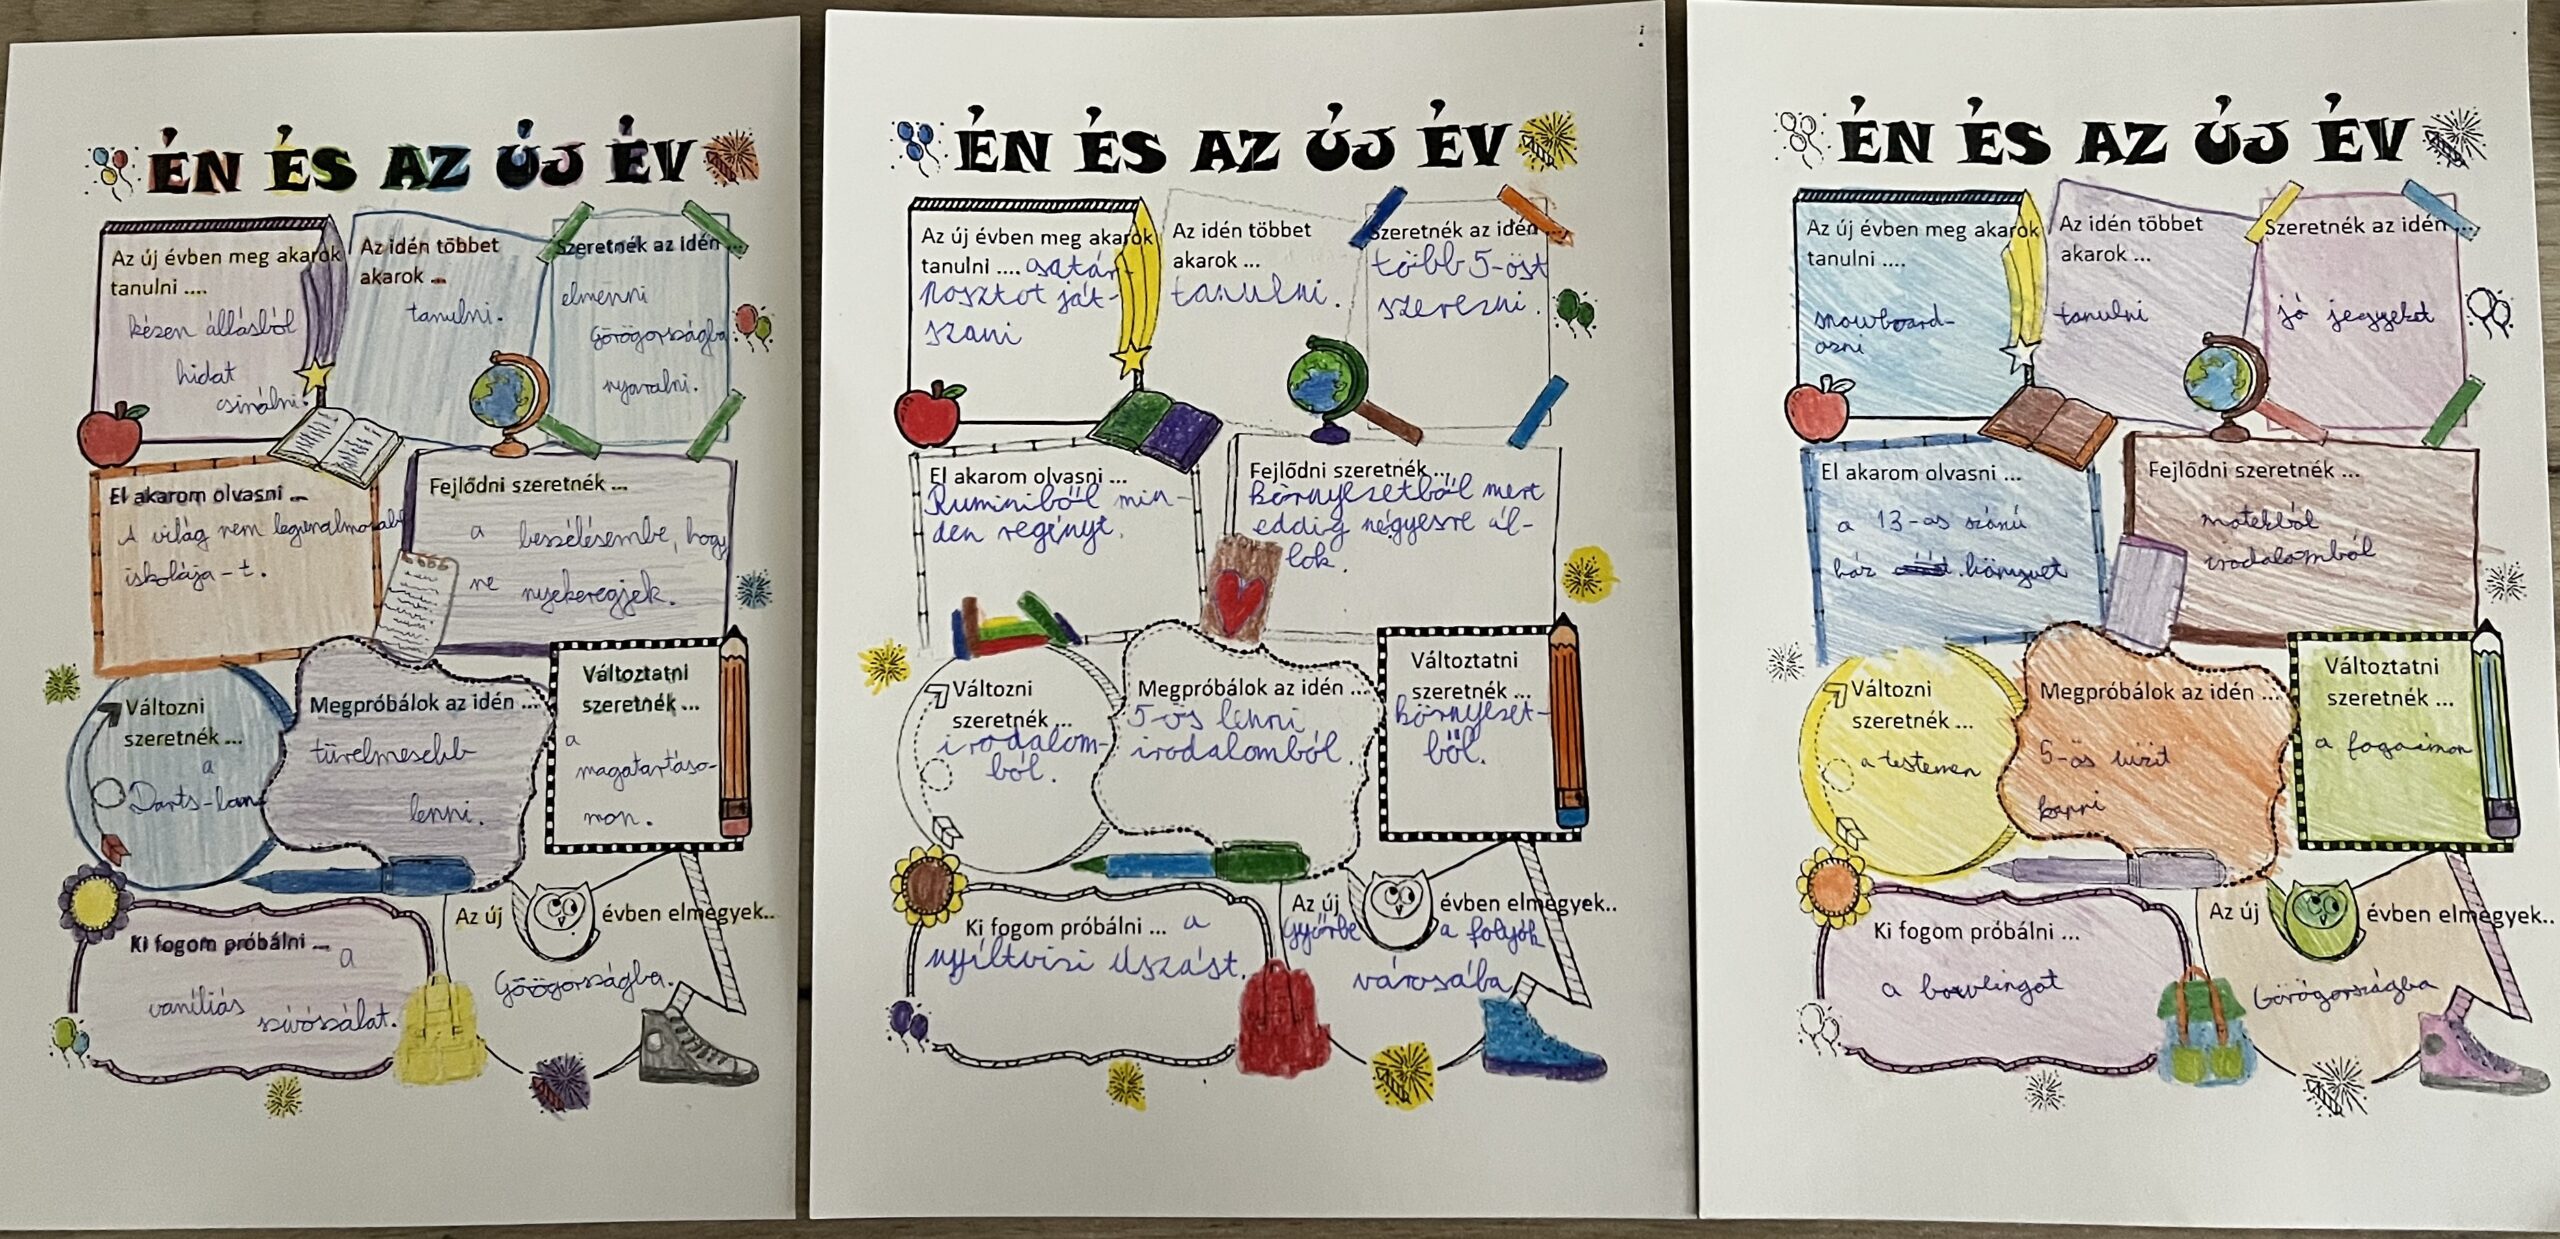 ÉN ÉS AZ ÚJ ÉV
Az új évben meg akarok
tanulni ....
kézen állásból
hidat
csinálni.
Az idén többet
akarok ...
tanulni.
Szeretnék az idén ...
elmenni
Görögországba
nyaralni.
El akarom olvasni ...
A világ nem legunalmasabb
iskolája-t.
Fejlődni szeretnék ...
a beszélésembe, hogy
ne nyekeregjek.
Változni
szeretnék ...
a
Darts-ban
Megpróbálok az idén ...
türelmesebb
lenni.
Változtatni
szeretnék ...
a
magatartáso-
mon.
Ki fogom próbálni ... a
vaníliás szívószálat.
Az új évben elmegyek..
Görögországba.
ÉN ÉS AZ ÚJ ÉV
Az új évben meg akarok
tanulni ....
ját-
szani
Az idén többet
akarok ...
tanulni.
Szeretnék az idén ...
több 5-öst
szerezni.
El akarom olvasni ...
Ruminiből min-
den regényt.
Fejlődni szeretnék ...
környezetből mert
eddig négyesre ál-
lok.
Változni
szeretnék ...
irodalom-
ból.
Megpróbálok az idén ...
5-ös lenni
irodalomból.
Változtatni
szeretnék ...
környezet-
ből.
Ki fogom próbálni ... a
nyíltvizi úszást.
Az új évben elmegyek..
Győrbe a folyók
városába
ÉN ÉS AZ ÚJ ÉV
Az új évben meg akarok
tanulni ....
snowboard-
ozni
Az idén többet
akarok ...
tanulni
Szeretnék az idén ...
jó jegyeket
El akarom olvasni ...
a 13-as számú
ház könyvet
Fejlődni szeretnék ...
matekból
irodalomból
Változni
szeretnék ...
a testemen
Megpróbálok az idén ...
5-ös bizit
kapni
Változtatni
szeretnék ...
a fogaimon
Ki fogom próbálni ...
a bowlingot
Az új évben elmegyek..
Görögországba